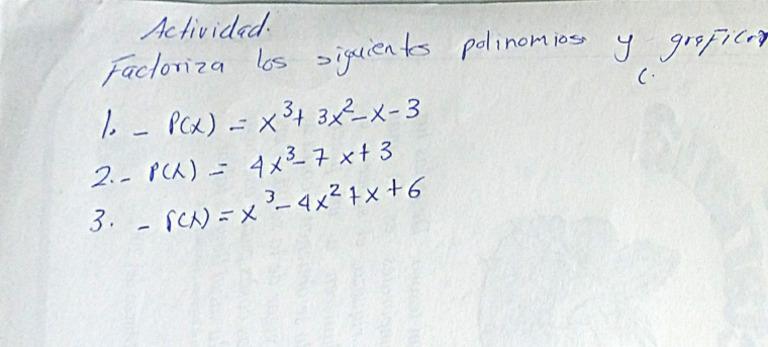 Actividad.
Factoriza los siguientes polinomios y graficar
1. - P(x) = x³+ 3x²-x-3
2.- P(x) = 4x³-7x+3
3. - P(x) = x³-4x²+x+6